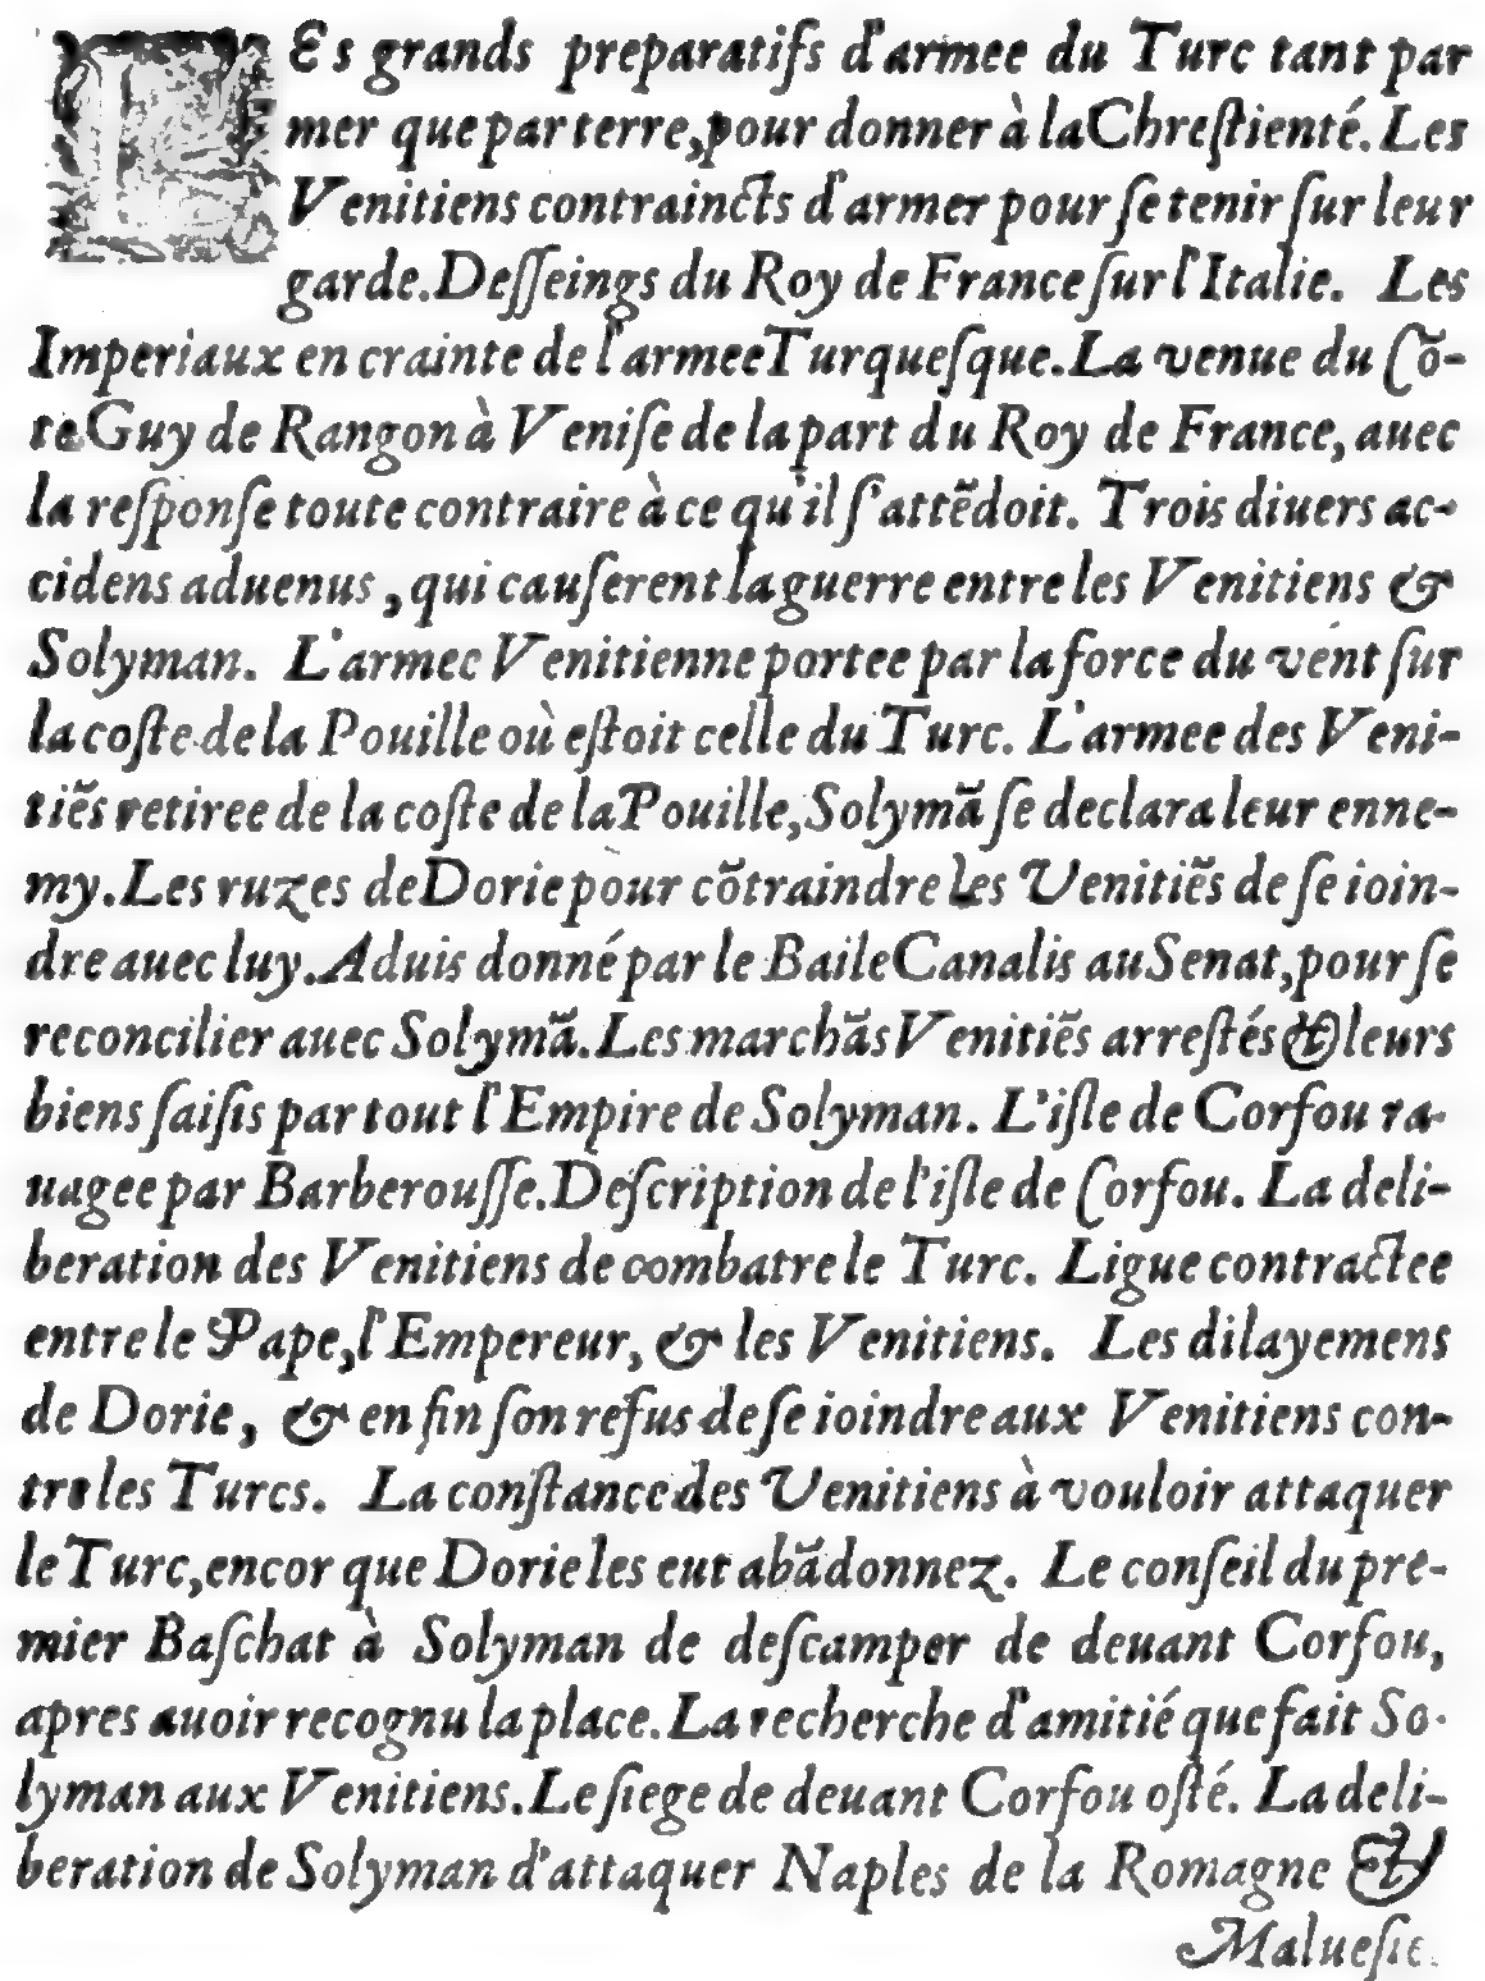 LEs grands preparatifs d'armee du Turc tant par
mer que par terre, pour donner à la Chreſtienté. Les
Venitiens contraincts d'armer pour ſe tenir ſur leur
garde. Deſſeings du Roy de France ſur l'Italie. Les
Imperiaux en crainte de l'armee Turqueſque. La venue du Cõ-
te Guy de Rangon à Veniſe de la part du Roy de France, auec
la reſponſe toute contraire à ce qu'il ſ'attẽdoit. Trois diuers ac-
cidens aduenus, qui cauſerent la guerre entre les Venitiens &
Solyman. L'armee Venitienne portee par la force du vent ſur
la coſte de la Pouille où eſtoit celle du Turc. L'armee des Veni-
tiẽs retiree de la coſte de la Pouille, Solymã ſe declara leur enne-
my. Les ruzes de Dorie pour cõtraindre les Venitiẽs de ſe ioin-
dre auec luy. Aduis donné par le Baile Canalis au Senat, pour ſe
reconcilier auec Solymã. Les marchãs Venitiẽs arreſtés & leurs
biens ſaiſis par tout l'Empire de Solyman. L'iſle de Corfou ra-
uagee par Barberouſſe. Deſcription de l'iſle de Corfou. La deli-
beration des Venitiens de combatre le Turc. Ligue contractee
entre le Pape, l'Empereur, & les Venitiens. Les dilayemens
de Dorie, & en fin ſon refus de ſe ioindre aux Venitiens con-
tre les Turcs. La conſtance des Venitiens à vouloir attaquer
le Turc, encor que Dorie les eut abãdonnez. Le conſeil du pre-
mier Baſchat à Solyman de deſcamper de deuant Corfou,
apres auoir recognu la place. La recherche d'amitié que fait So-
lyman aux Venitiens. Le ſiege de deuant Corfou oſté. La deli-
beration de Solyman d'attaquer Naples de la Romagne &
Malueſie.